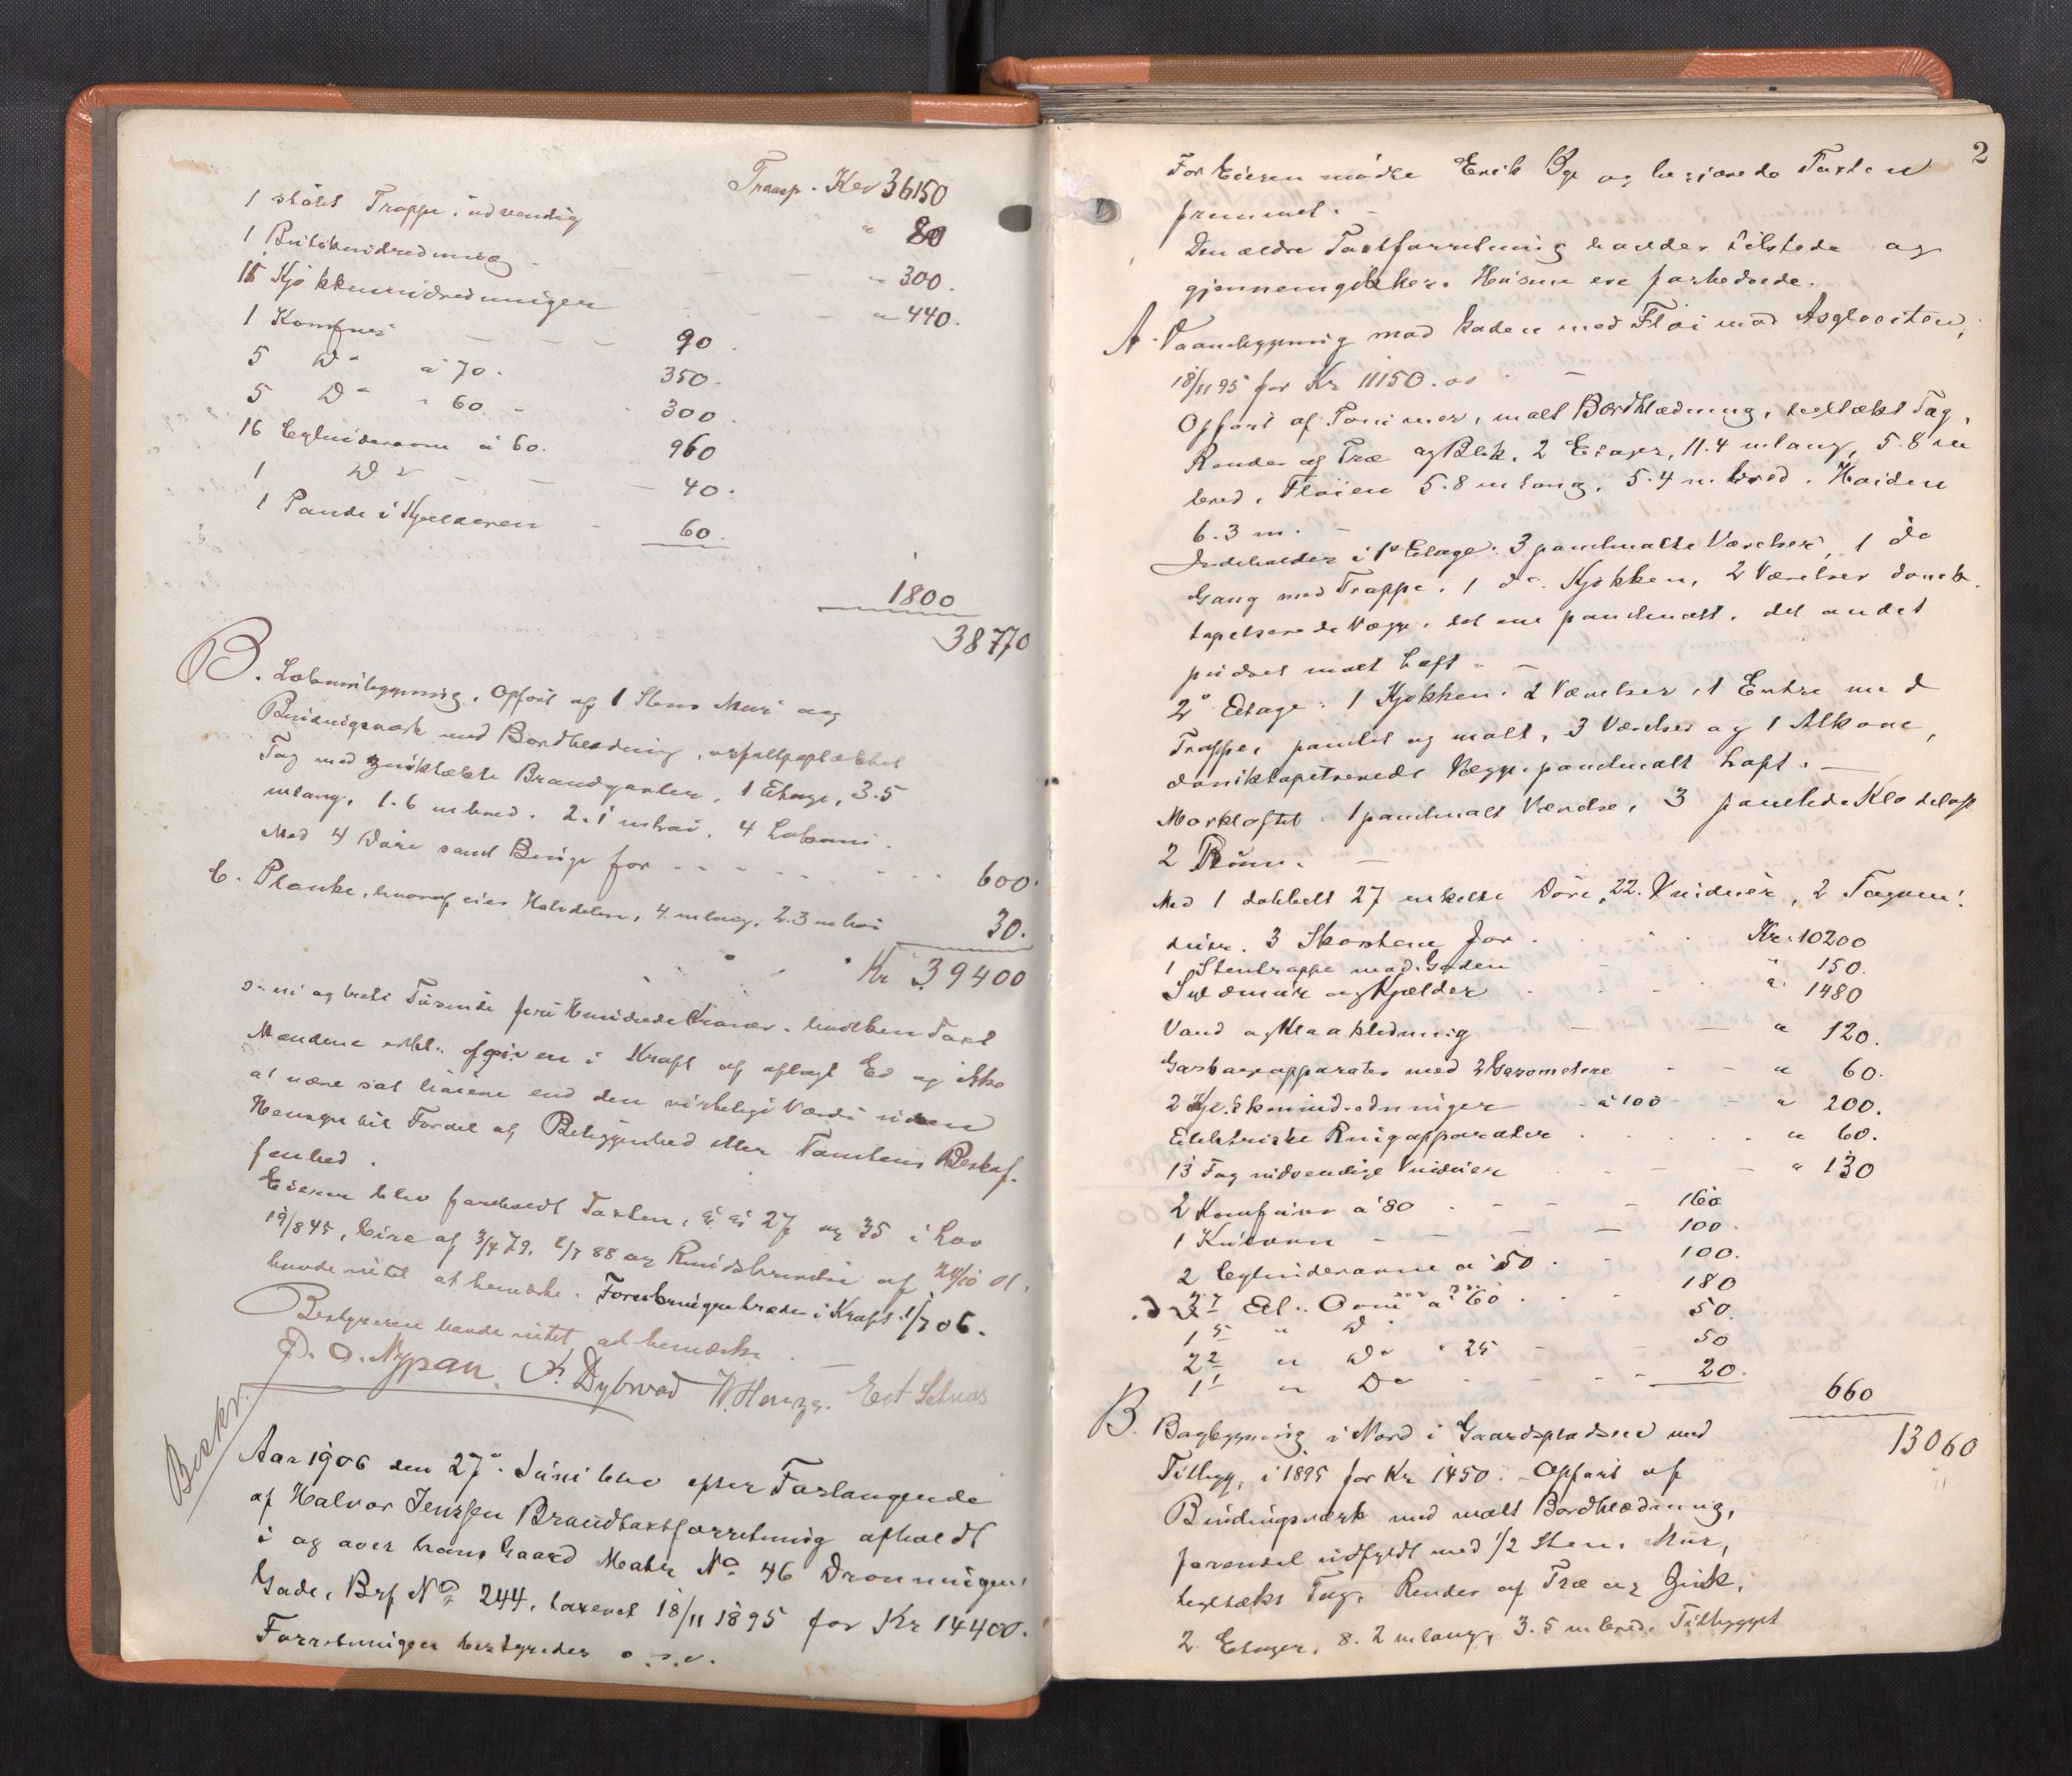 Transp. Kr 36150
1 støbt Trappe, udvendig " 80
1 Butikindredning " 300.
11 Kjøkkenindredninger " 440.
1 Komfur 90.
5 Do à 70. 350.
5 Do " 60 300.
16 Cylinderovne à 60. 960
1 Do 40.
1 Pande i Kjælderen 60.
1800
38770
B. Lokumbygning, Opført af 1 Stens Mur og
Bindingsværk med Bordklædning, asfaltpaptækket
Tag med zinktækte Brandgavler, 1 Etage, 3.5
m lang, 1.6 m bred. 2.1 m høi. 4 Lokumer.
Med 4 Døre samt Binge for 600.
C. Planke, hvoraf eies Halvdelen, 4. m lang, 2.3 m høi 30.
Kr 39400
ni og tredi Tusinde fire Hundrede Kroner, hvilken Taxt
Mændene erkl. afgiven i Kraft af aflagt Ed og ikke
at være sat høiere end den virkelige Værdi uden
Hensyn til Fordel af Beliggenhed eller Tomtens Beskaf-
fenhed.
Eieren blev foreholdt Taxten, §§ 27 og 35 i Lov
19/8 45, Circ af 3/4 79, 88 og Rundskrivelse af 24/10 01,
havde intet at bemærke. Forsikringen træder i Kraft 1/7 06.
Bestyreren havde intet at bemærke.
O. Nypan. Dybwad
Beskr.
Aar 1906 den 27de Juni blev efter Forlangende
af Halvor Jenssen Brandtaxtforretning afholdt
i og over hans Gaard Matr No 46 Dronningens
Gade, Brf No 244, taxeret 18/11 1895 for Kr 14400.
Forretningen bestyredes o.s.v.
2
For Eieren mødte Erik Bye og begjærede Taxten
fremmet.
Den ældre Taxtforretning havdes tilstede og
gjennemgikkes. Husene ere forbedrede.
A. Vaaningsbygning mod Gaden med Fløi mod
18/11 95 for Kr 11150.00
Opført af Tømmer, malt Bordklædning, tegltækt Tag,
Render af Træ og Blik, 2 Etager, 11.4 m lang, 5.8 m
bred, Fløien 5.8 m lang, 5.4 m bred. Høiden
6.3 m.
Indeholder i 1ste Etage: 3 panelmalte Værelser, 1 do
Gang med Trappe, 1 do. Kjøkken, 2 Værelser donck-
tapetserede Vægge, det ene panelmalt, det andet
pudset malt Loft.
2den Etage: 1 Kjøkken, 2 Værelser, 1 Entre med
Trappe, panelet og malt, 3 Værelser og 1 Alkove,
donktapetserede Vægge, panelmalt Loft.
Mørkloftet: 1 panelmalt Værelse, 3 panelede Klædeloft
2 Rum.
Med 1 dobbelt 27 enkelte Døre, 22. Vinduer, 2 Tagvin-
duer. 3 Skorstene for Kr. 10200
1 Stentrappe mod Gaden " 150.
Syldmur og Kjælder " 1480
Vand og Kloakledning " 120.
Gasbageapparater med 2 Gasometere " 60.
2 Kjøkkenindredninger à 100 " 200.
Elektriske Ringapparater " 60.
13 Fag indvendige Vinduer " 130
2 Komfurer à 80 160
1 Kulovn 100.
2 Cylinderovne à 50 100.
3 Et. Ovne à 60 180
1 " D 50.
2 " Do " 25 50
1 " Do 20.
660
13060
B. Bagbygning i Nord i Gaardspladsen med
Tilbygg, i 1895 for Kr 1450. Opført af
Bindingsværk med malt Bordklædning,
forendel udfyldt med 1/2 Stens Mur,
tegltækt Tag, Render af Træ og Zink,
2 Etager, 8.2 m lang, 3.5 m bred. Tilbygget